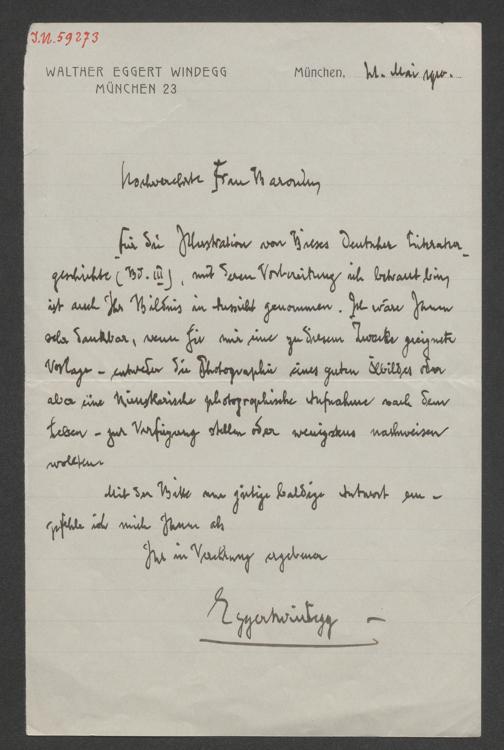 I.N. 59273
WALTHER EGGERT WINDEGG
MÜNCHEN 23
München, 21. Mai 1910.
Hochverehrte Frau Baronin,
für die Illustration von Bieses Deutscher Literatur-
geschichte (Bd. III), mit deren Vorbereitung ich betraut bin,
ist auch Ihr Bildnis in Aussicht genommen. Ich wäre Ihnen
sehr dankbar, wenn Sie mir eine zu diesem Zwecke geeignete
Vorlage – entweder die Photographie eines guten Ölbildes oder
aber eine künstlerische photographische Aufnahme nach dem
Leben – zur Verfügung stellen oder wenigstens nachweisen
wollten.
Mit der Bitte um gütige baldige Antwort em-
pfehle ich mich Ihnen als
Ihr in Verehrung ergebener
Eggertwindegg